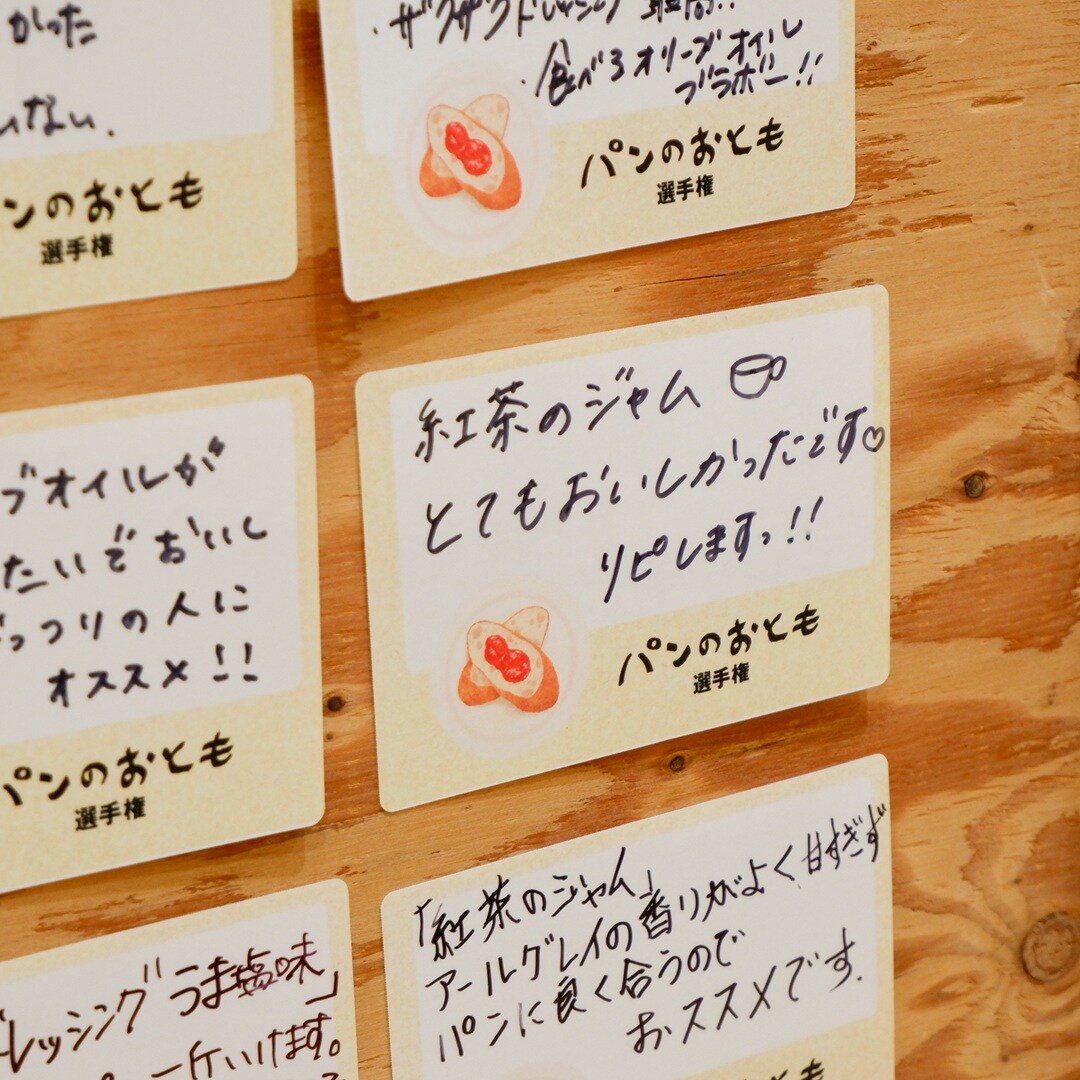 かった
いない.
ンのおとも
選手権
・ザクザクドレッシング 最高!!
・食べるオリーブオイル
ブラボー!!
パンのおとも
選手権
ブオイルが
たいでおいし
っつりの人に
オススメ!!
パンのおとも
選手権
紅茶のジャム
とてもおいしかったです♡
リピしますっ!!
パンのおとも
選手権
レッシング"うま塩味"」
いけます。
「紅茶のジャム」
アールグレイの香りがよく甘すぎず
パンに良く合うので
おススメです.
とも